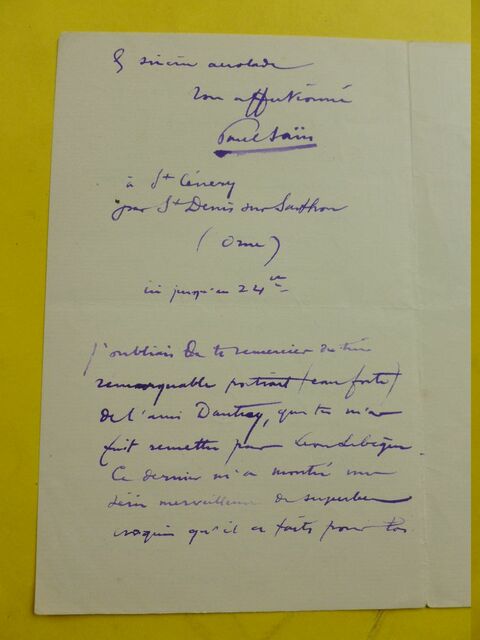 & sincère accolade
Ton affectionné
Paul Saïn
à St Cénery
par St Denis sur Sarthon
(Orne)
ici jusqu'au 24
J'oubliais de te remercier du très
remarquable portrait (eau forte)
de l'ami Dautrey, que tu m'as
fait remettre par Léon Lebègue.
Ce dernier m'a montré une
série merveilleuse de superbes
croquis qu'il a faits pour